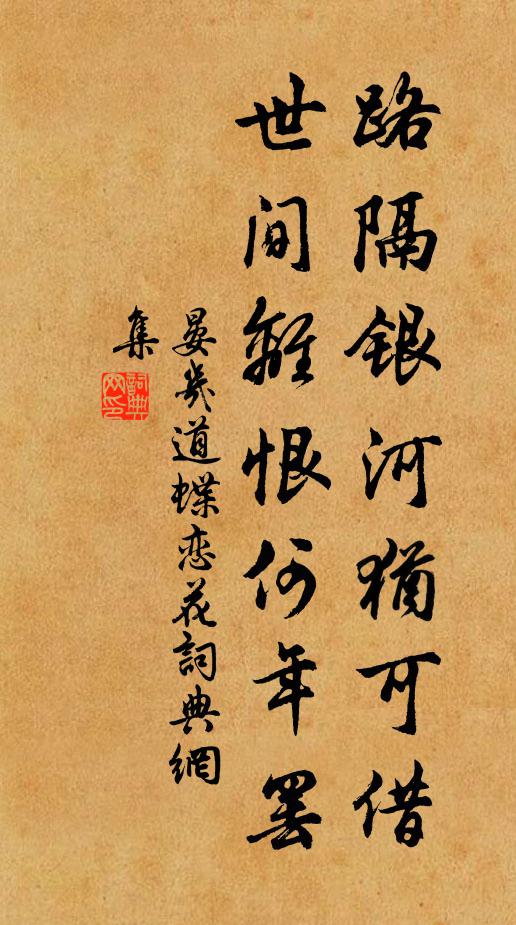 路隔銀河猶可借
世间離恨何年罢
晏幾道蝶恋花詞典網
集
詞典網印